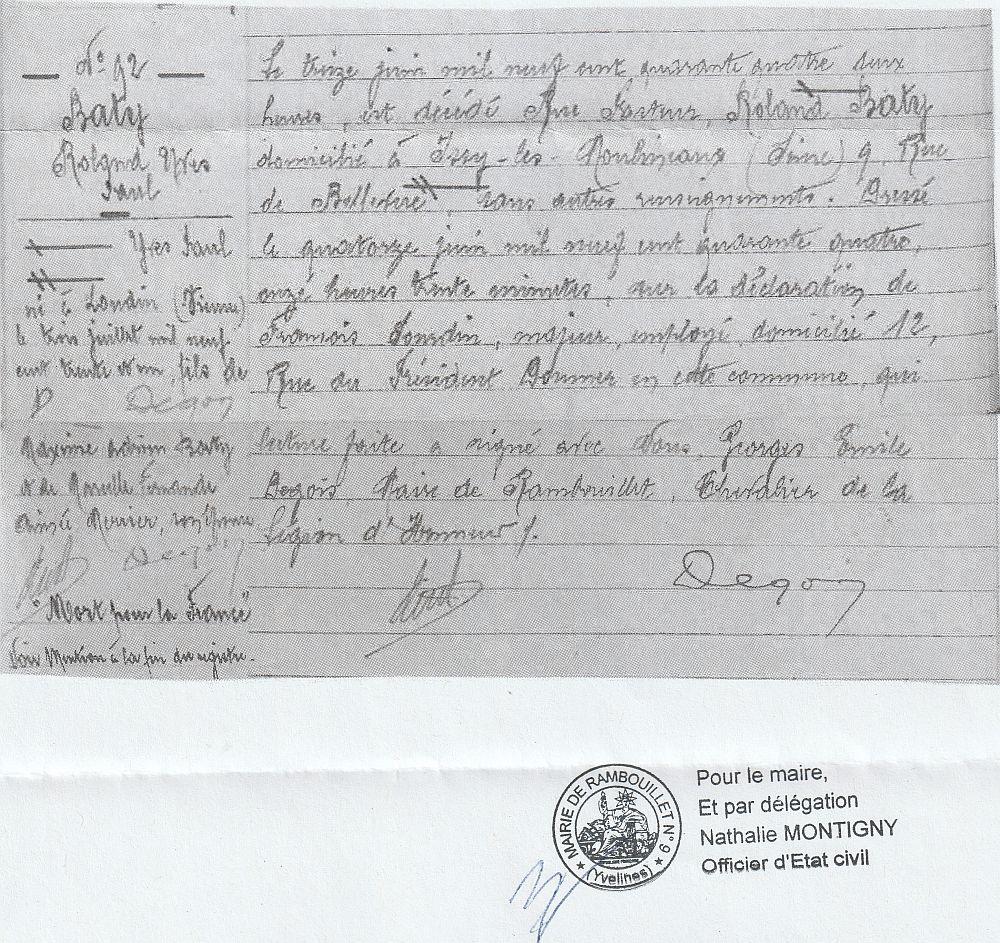 N° 92
Baty
Roland Yves
Paul
Yves Paul
né à Loudun (Vienne)
le trois juillet mil neuf
cent trente et un, fils de
Degois
Maxime Baty
et de Marcelle Fernande
Aimée Mercier, son épouse
Degois
"Mort pour la France"
Voir Mention à la fin du registre.
Le treize juin mil neuf cent quarante quatre deux
heures, est décédé Rue Pasteur, Roland Baty
domicilié à Issy-les-Moulineaux (Seine) 9, Rue
de Bellevue, sans autres renseignements. Dressé
le quatorze juin mil neuf cent quarante quatre,
onze heures trente minutes, sur la déclaration de
François Jourdin, majeur, employé, domicilié 12,
Rue du Président Doumer en cette commune, qui
lecture faite a signé avec Nous, Georges Emile
Degois, Maire de Rambouillet, Chevalier de la
Légion d'Honneur /.
Degois
MAIRIE DE RAMBOUILLET N° 9
(Yvelines)
Pour le maire,
Et par délégation
Nathalie MONTIGNY
Officier d'Etat civil